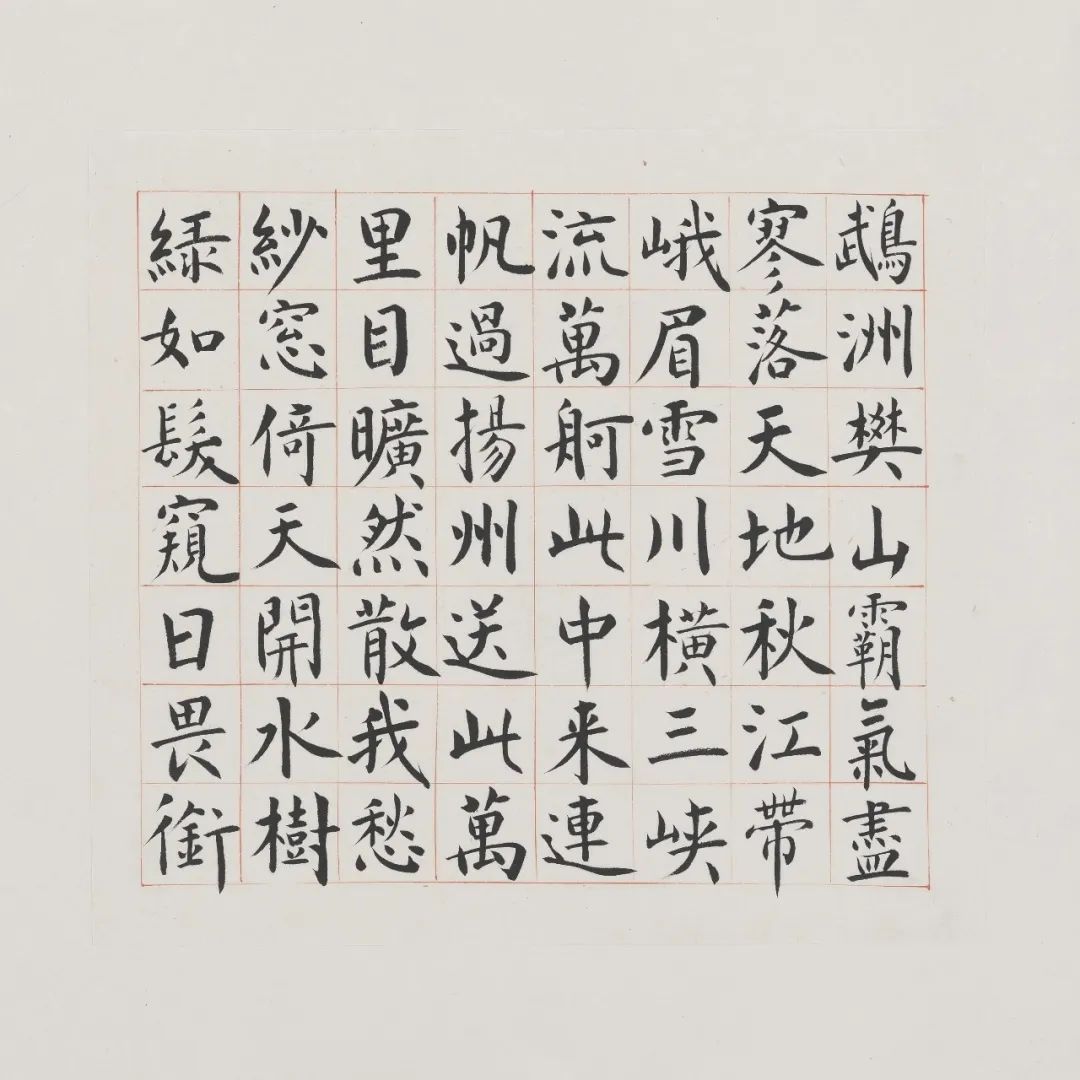 鵡洲樊山霸氣盡
寥落天地秋江帶
峨眉雪川橫三峽
流萬舸此中来連
帆過揚州送此萬
里目曠然散我愁
紗窓倚天開水樹
綠如髮窺日畏銜